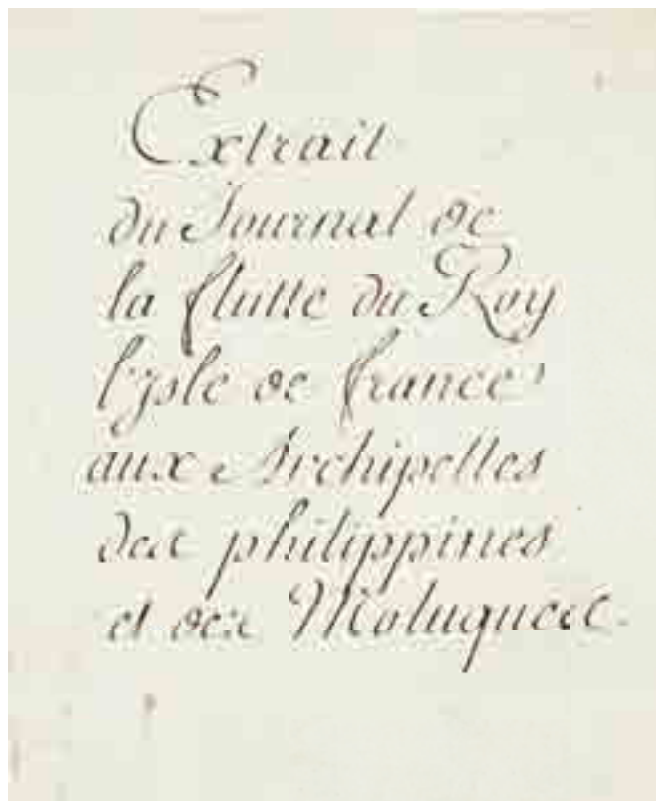 Extrait
du Journal de
la flutte du Roy
l'jsle de france
aux Archipelles
des philippines
et des Moluques.